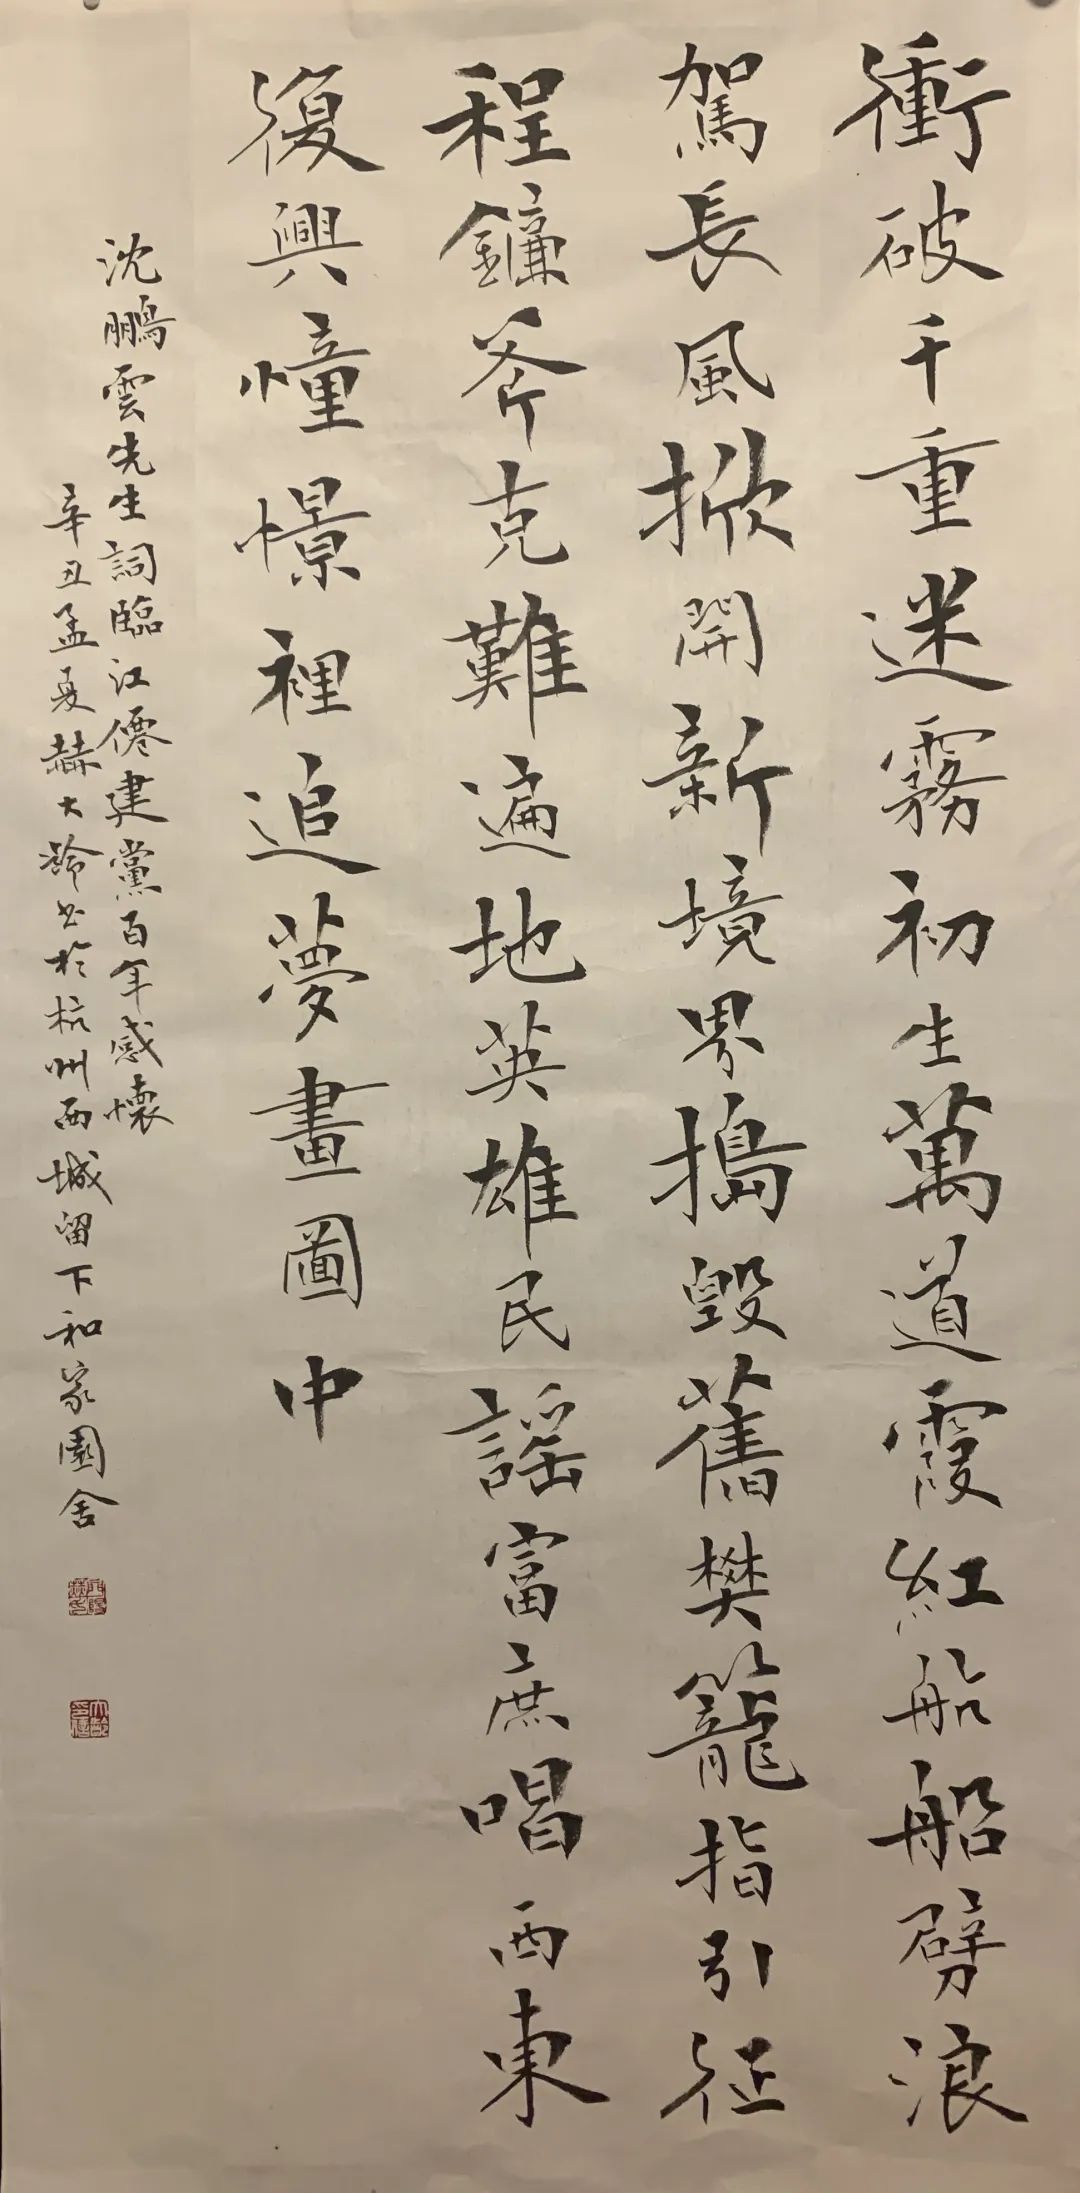 衝破千重迷霧初生萬道霞紅船船劈浪
駕長風掀開新境界搗毀舊樊籠指引征
程鐮斧克難遍地英雄民謡富庶唱西東
復興憧憬裡追夢畫圖中
沈鵬雲先生詞臨江僊建黨百年感懷
辛丑孟夏赫大齡书於杭州西城留下和家園舍